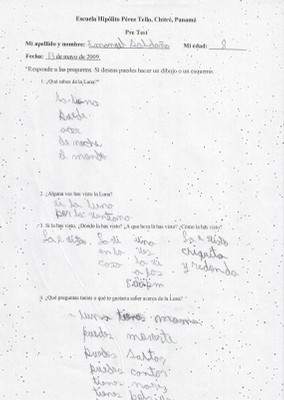 Escuela Hipólito Pérez Tello, Chitré, Panamá
Pre Test
Mi apellido y nombre: Emanuel Saldaña Mi edad: 8
Fecha: 13 de mayo de 2009.
*Responde a las preguntas. Si deseas puedes hacer un dibujo o un esquema.
1. ¿Qué sabes de la Luna?
La luna
puede
acer
de noche
el mundo
2. ¿Alguna vez has visto la Luna?
si la luna
por la ventana
3. Si la has visto, ¿Dónde la has visto? ¿A que hora la has visto? ¿Cómo la has visto?
La e visto. La vi una La e visto
en la vez chiquita
casa la vi y redonda
a las
8:00 pm
4. ¿Qué preguntas tienes o qué te gustaría saber acerca de la Luna?
luna tienes mamá
puedes moverte
puedes saltar
puedes cantar
tienes
tienes